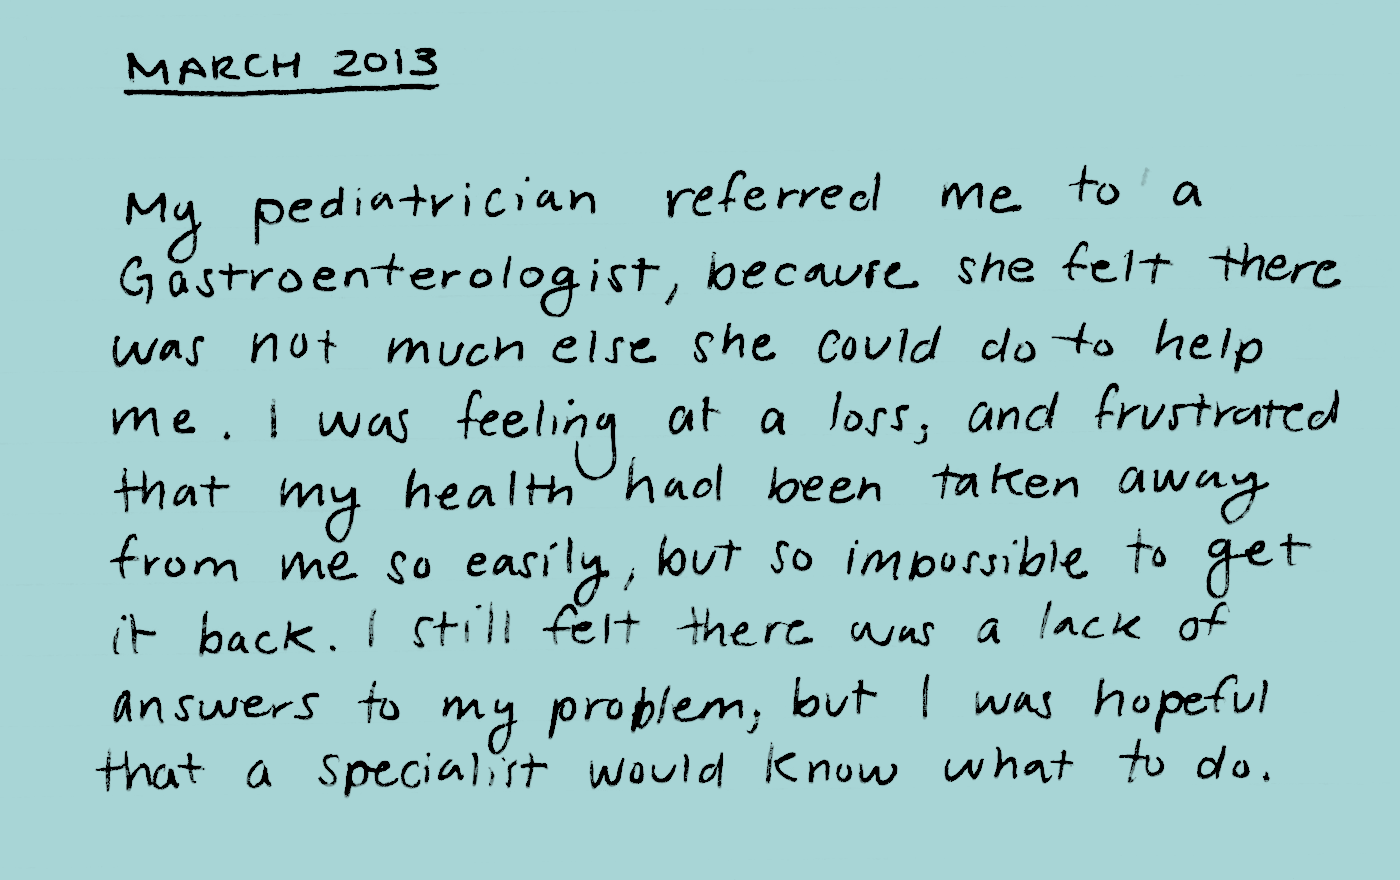 MARCH 2013
My pediatrician referred me to a
Gastroenterologist, because she felt there
was not much else she could do to help
me. I was feeling at a loss, and frustrated
that my health had been taken away
from me so easily, but so impossible to get
it back. I still felt there was a lack of
answers to my problem, but I was hopeful
that a specialist would know what to do.